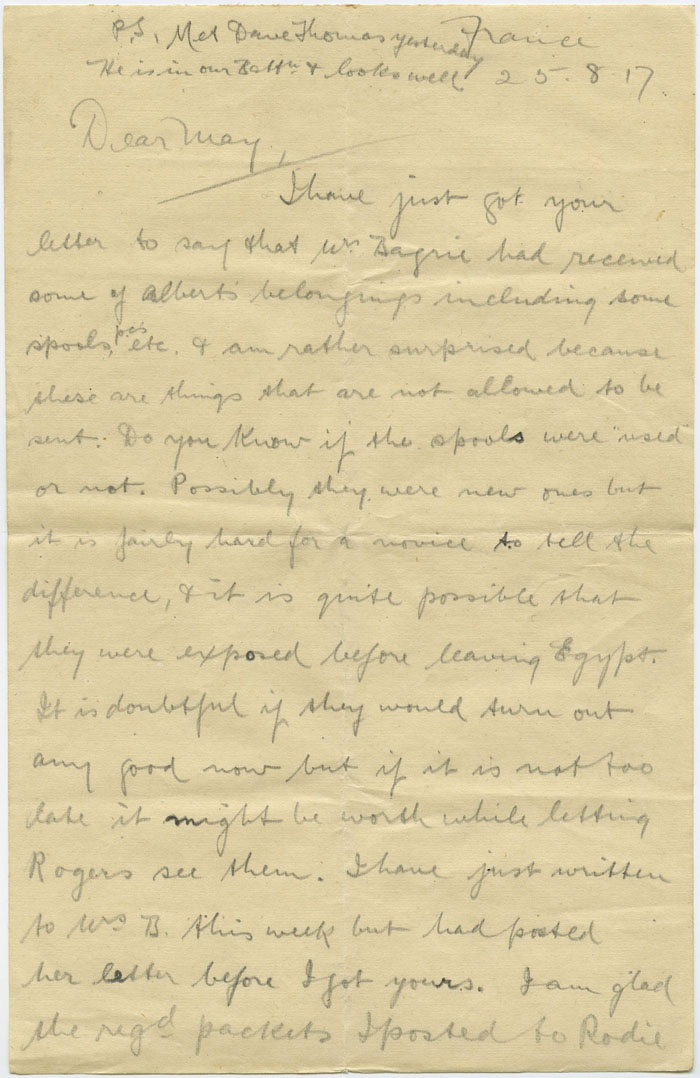 P.S. Met Dave Thomas yesterday
He is in our Battn & looks well
France
25.8.17
Dear May,
I have just got your
letter to say that Mrs Bagrie had received
some of Alberts belongings including some
spools, pcs etc. & am rather surprised because
these are things that are not allowed to be
sent. Do you know if the spools were "used
or not. Possibly they were new ones but
it is fairly hard for a novice to tell the
difference, & it is quite possible that
they were exposed before leaving Egypt.
It is doubtful if they would turn out
any good now but if it is not too
late it might be worth while letting
Rogers see them. I have just written
to Mrs B. this week but had posted
her letter before I got yours. I am glad
the regd packets I posted to Rodie